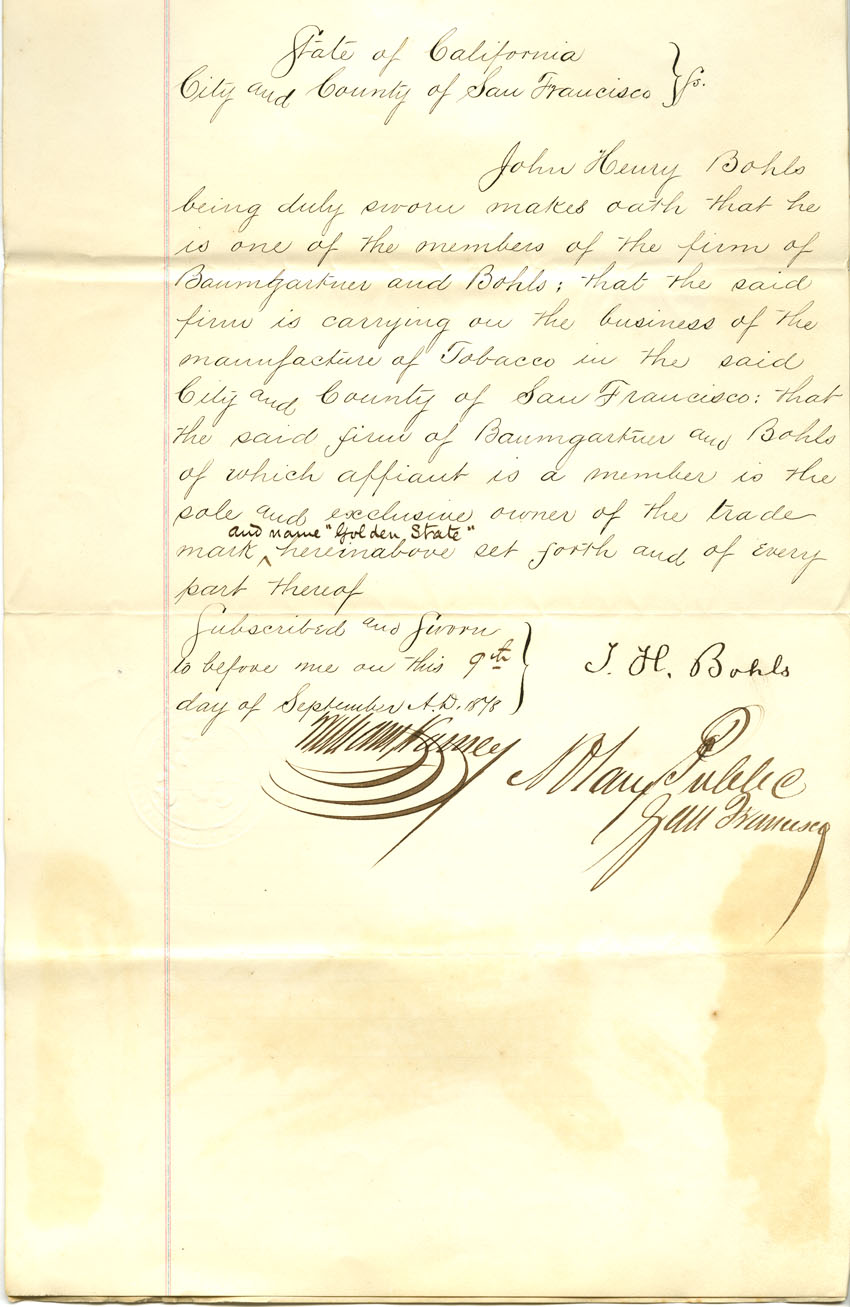 State of California
City and County of San Francisco } ss.
John Henry Bohls
being duly sworn makes oath that he
is one of the members of the firm of
Baumgartner and Bohls; that the said
firm is carrying on the business of the
manufacture of Tobacco in the said
City and County of San Francisco: that
the said firm of Baumgartner and Bohls
of which affiant is a member is the
sole and exclusive owner of the trade
and name "Golden State"
mark ^ hereinabove set forth and of every
part thereof
Subscribed and Sworn
to before me on this 9th
day of September A.D. 1878
J. H. Bohls
William Harney
Notary Public
San Francisco